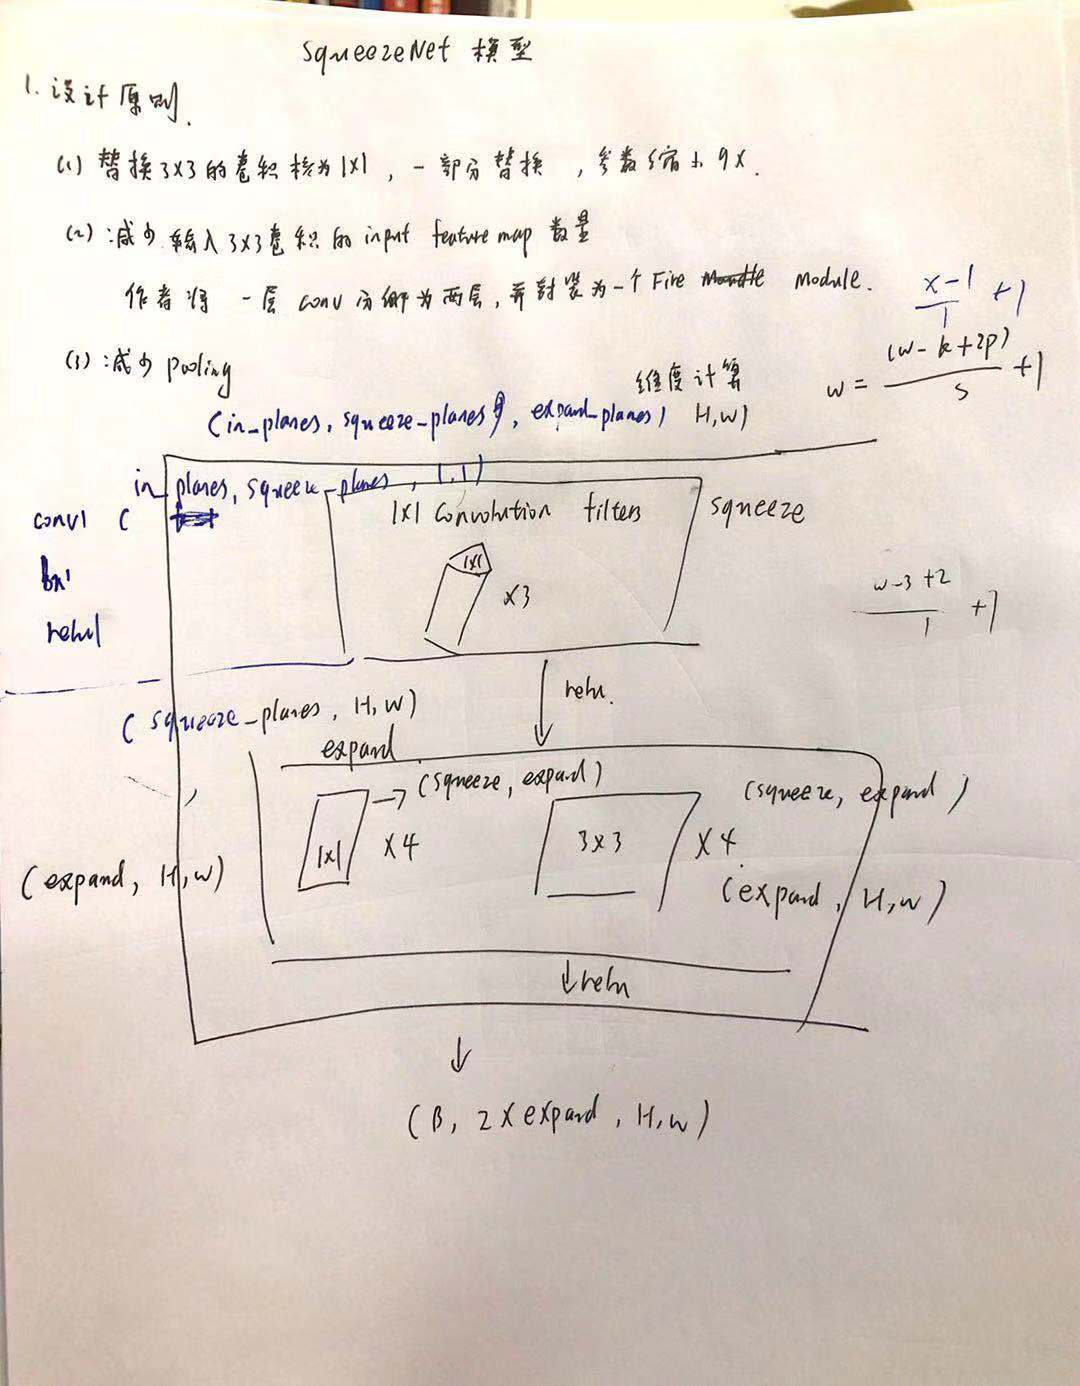 SqueezeNet 模型
1. 设计原则.
(1) 替换3x3的卷积核为1x1, 一部分替换, 参数缩小9x.
(2) 减少输入3x3卷积的input feature map数量
作者将一层conv分解为两层, 并封装为一个Fire Module.
x-1
1
+1
(3) 减少pooling
维度计算
w = (w-k+2p)
s
+1
(in_planes, squeeze_planes, expand_planes) H,w)
in_planes, squeeze_planes, 1,1)
conv1 (
1x1 convolution filters
squeeze
bn1
relu1
1x1
x3
w-3+2
1
+1
relu.
(squeeze_planes, H,w)
expand
→ (squeeze, expand)
(squeeze, expand)
1x1
x4
3x3
x4.
(expand, H,w)
(expand, H,w)
↓relu
↓
(B, 2xexpand, H,w)